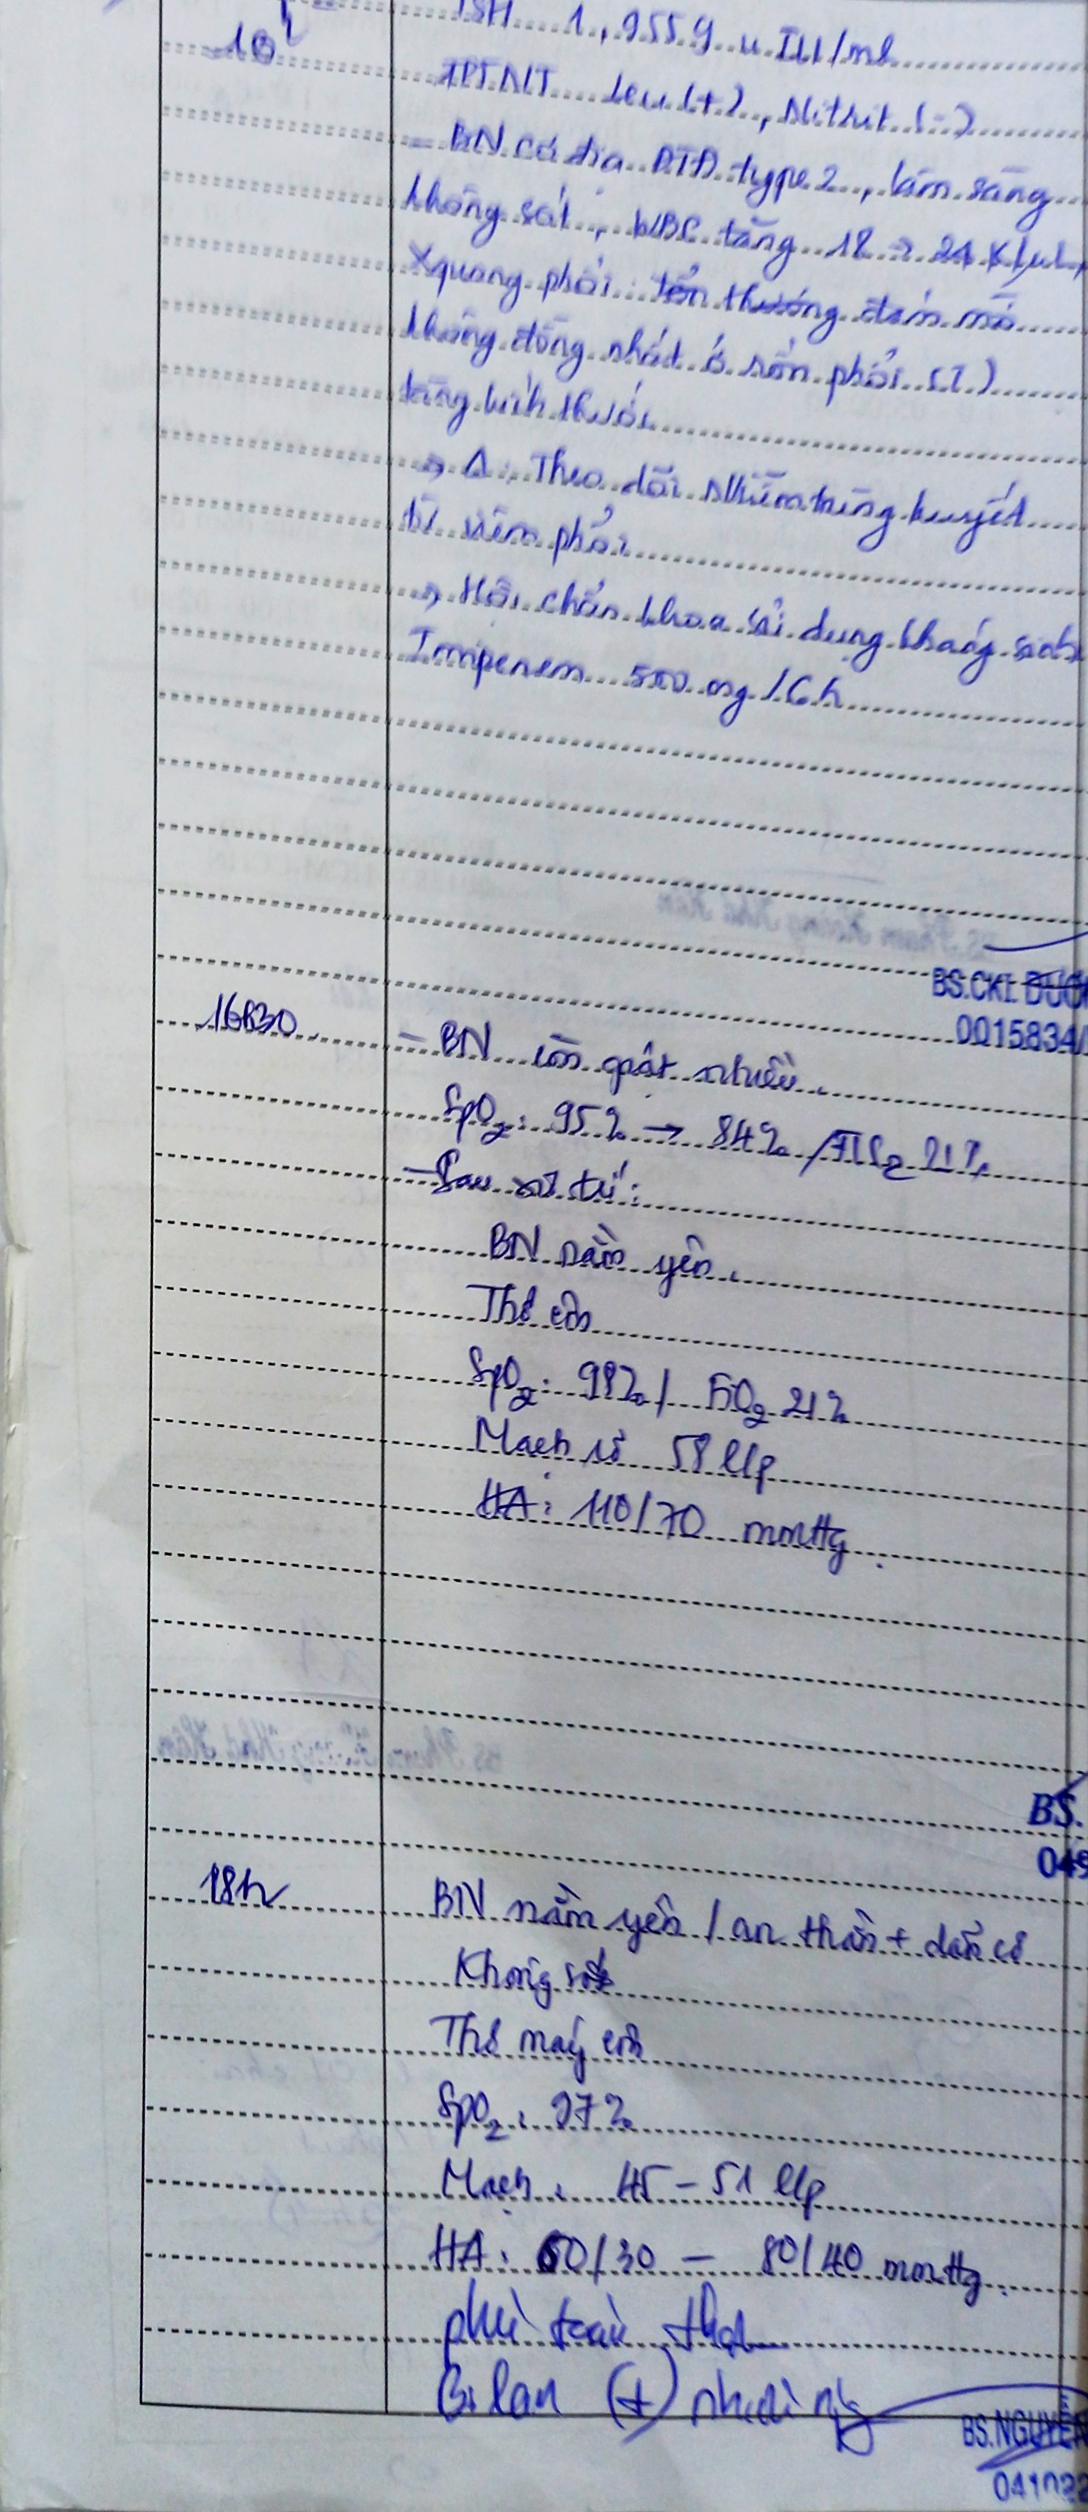 10h
TSH 1,9559 uIU/ml
TPTNT Leu (+), Nitrit (-)
- BN có địa ĐTĐ type 2, lâm sàng
không sốt, WBC tăng 18 → 24 K/uL,
Xquang phổi: tổn thương đám mờ
không đồng nhất ở rốn phổi (T)
tăng kích thước
→ Δ: Theo dõi nhiễm trùng huyết
từ viêm phổi
→ Hội chẩn khoa sử dụng kháng sinh
Imipenem 500 mg/6h
BS.CKI. DƯƠ
0015834/
16h30
- BN còn quật nhiều.
SpO2: 95% → 84% /FiO2 21%
- Sau xử trí:
BN nằm yên.
Thở êm
SpO2: 98% / FiO2 21%
Mạch rõ 58 l/p
HA: 110/70 mmHg.
BS.
049
18h
BN nằm yên / an thần + dãn cơ
Không sốt
Thở máy êm
SpO2: 97%
Mạch: 45 - 51 l/p
HA: 60/30 - 80/40 mmHg.
phù toàn thân
Bilan (+) nhiều
BS.NGUYỄN
041022